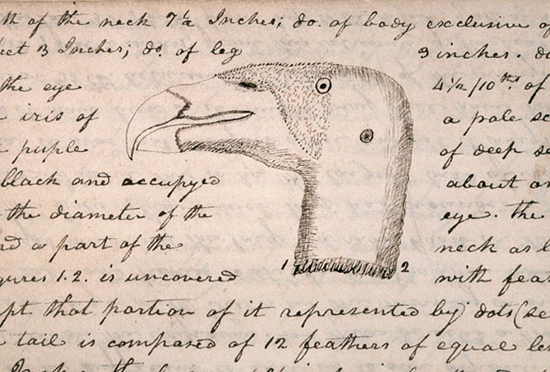 th of the neck 7½ Inches; do. of body exclusive of
eet 3 Inches; do. of leg 3 inches. di
the eye 4½/10ths of
iris of a pale sc
puple of deep se
black and occupyed about on
the diameter of the eye. the
d a part of the neck as l
gures 1.2. is uncovered with feat
pt that portion of it represented by dots (se
tail is composed of 12 feathers of equal le
1 2